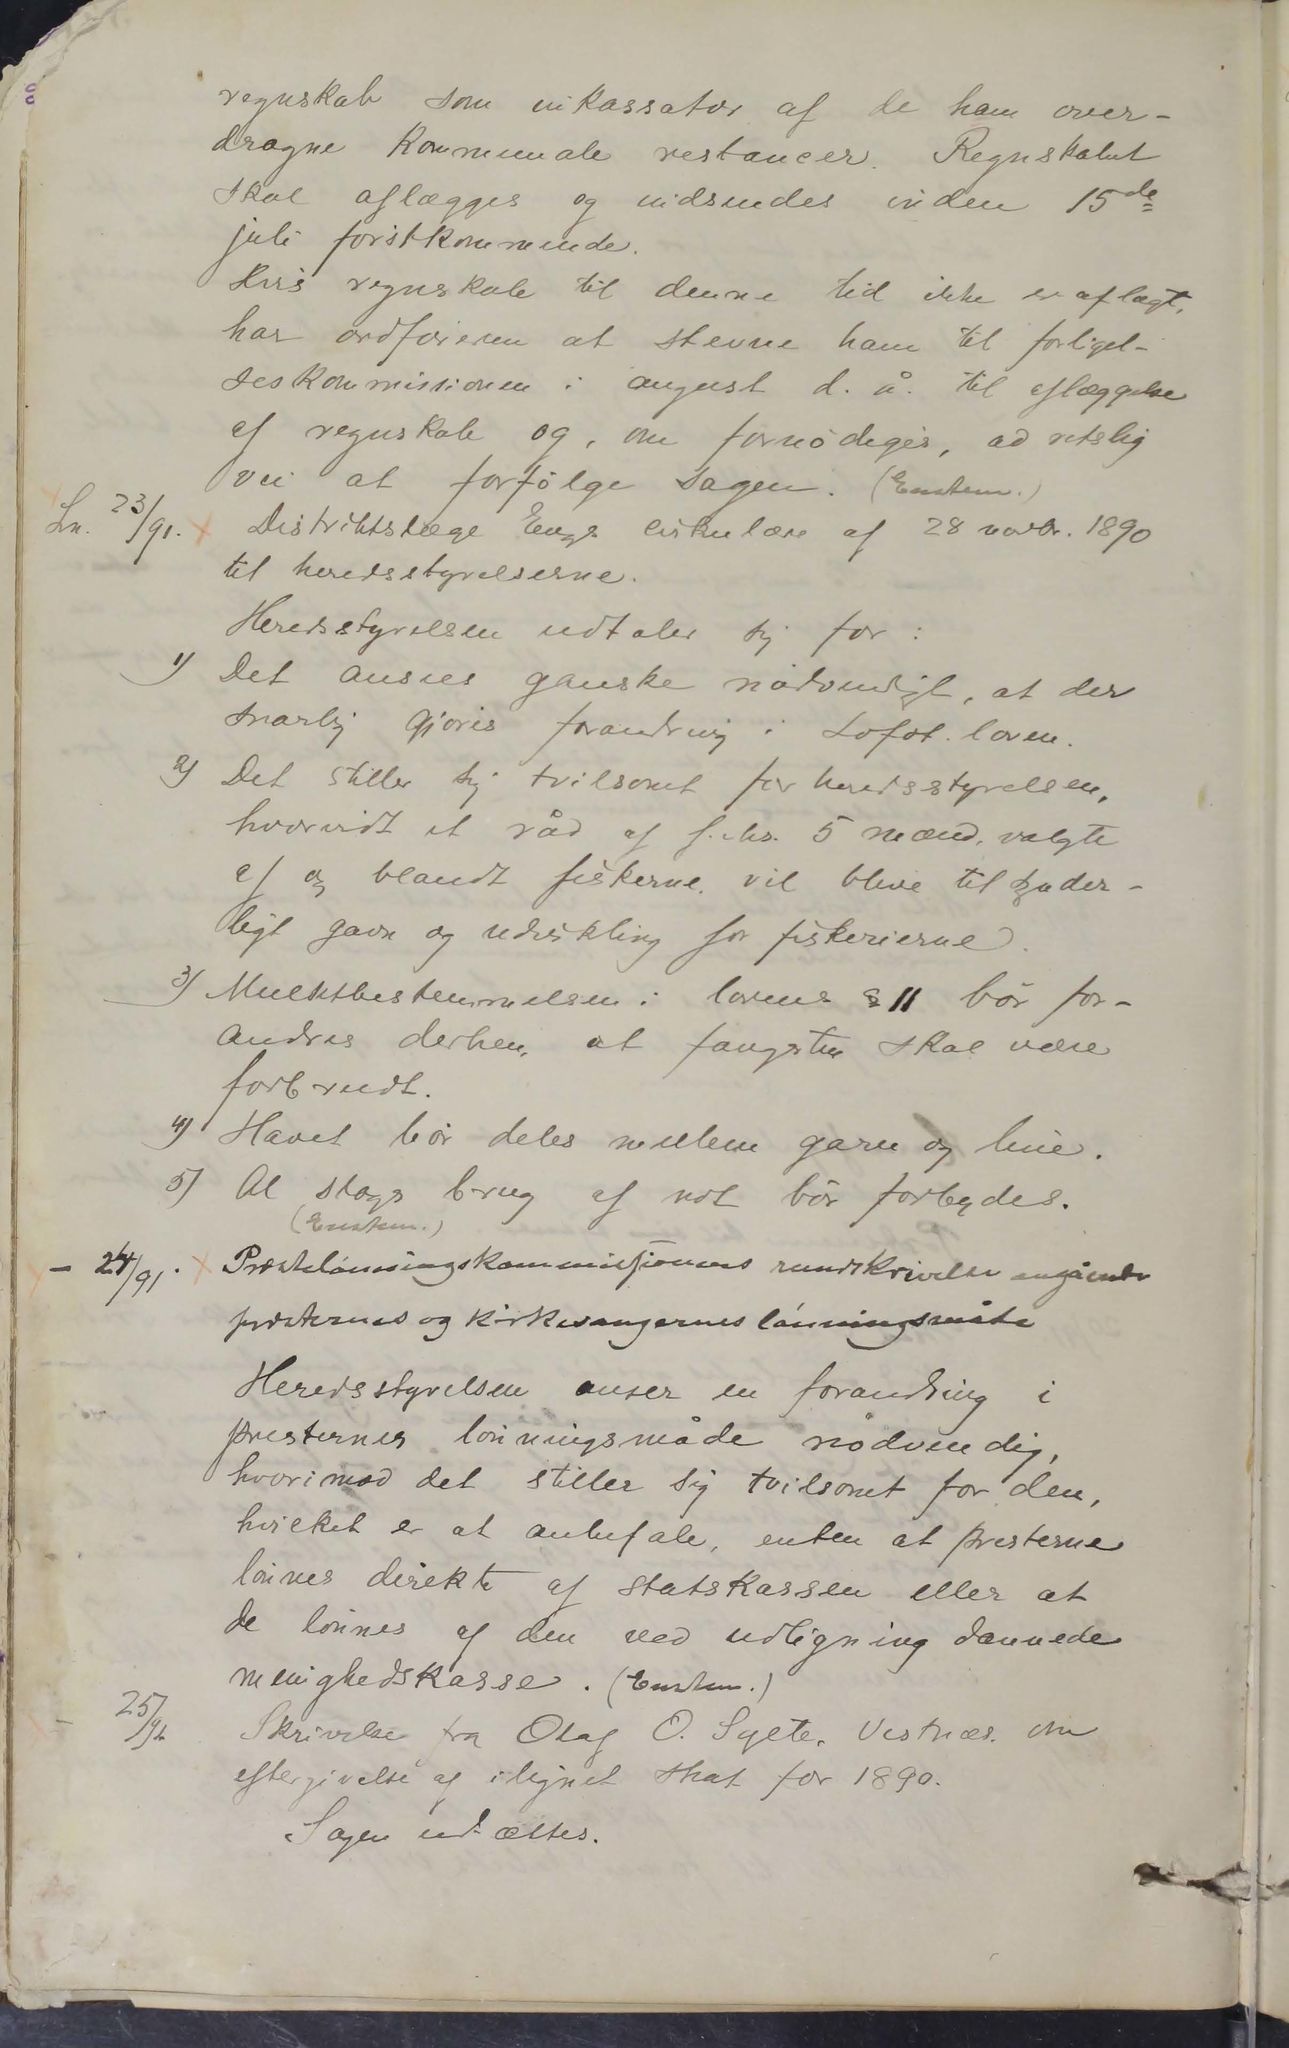 regnskab som inkassator af de ham over-
dragne kommunale restancer. Regnskabet
skal aflægges og indsendes inden 15de
juli førstkommende.
Hvis regnskab til denne tid ikke er aflagt,
har ordføreren at stevne ham til forligel-
seskommissionen i august d. å. til aflæggelse
af regnskab og, om fornødiges, ad retslig
vei at forfølge sagen. (Enstem.)
Ln. 23/91. Distriktslæge Engs cirkulære af 28 novbr. 1890
til heredsstyrelserne.
Heredsstyrelsen udtaler sig for:
1) Det ansees ganske nødvendigt, at der
snarlig gjøres forandring i Lofot-loven.
2) Det stiller sig tvilsomt for heredsstyrelsen,
hvorvidt et råd af f. eks. 5 mænd, valgte
af og blandt fiskerne, vil blive til synder-
ligt gavn og udvikling for fiskerierne.
3) Mulktbestemmelsen i lovens § 11 bør for-
andres derhen, at fangsten skal være
forbrudt.
4) Havet bør deles mellem garn og line.
5) Al slags brug af not bør forbydes.
(Enstem.)
- 24/91. Prestelønningskommissionens rundskrivelse angående
presternes og kirkesangernes lønningsmåte
Heredsstyrelsen anser en forandring i
presternes lønningsmåde nødvendig,
hvorimod det stiller sig tvilsomt for den,
hvilket er at anbefale, enten at presterne
lønnes direkte af statskassen eller at
de lønnes af den ved udligning dannede
menighedskasse. (Enstem.)
- 25/91 Skrivelse fra Olaf O. Sylte, Vestnæs om
eftergivelse af ilignet skat for 1890.
Sagen udsættes.